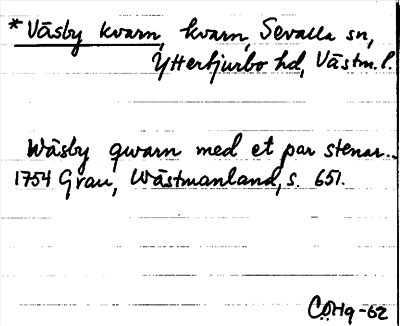 *Väsby kvarn, kvarn, Sevalla sn,
Yttertjurbo hd, Västm.l.
Wäsby qwarn med et par stenar..
1754 Grau, Wästmanland, s. 651.
CÖHq-62